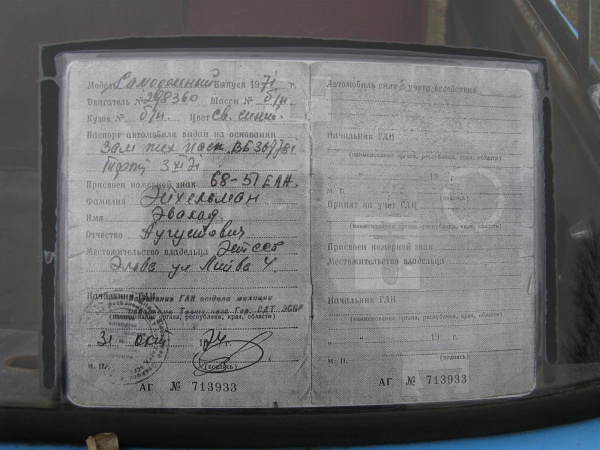 Модель Самодельный Выпуск 1971 г.
Двигатель № 248360 Шасси № б/н.
Кузов № б/н. Цвет Св. синий
Паспорт автомобиля выдан на основании
Зам тех пасп. ВБ 307781
3 XI 71
Присвоен номерной знак 68-51 ЕЛН.
Фамилия Эйхельман
Имя Эвалд
Отчество Аугустович
Местожительство владельца Эстсср
Элва ул. Пихва 4.
Начальник ГАИ ГАИ отдела милиции
(наименование органа, республики, края, области)
31 окт 1974
(подпись)
М. П.
АГ № 713933
Автомобиль снят с учета вследствие
Начальник ГАИ
(наименование органа, республики, края, области)
" " 19 г.
М. П. (подпись)
Принят на учет ГАИ
(наименование органа, республики, края, области)
Присвоен номерной знак
Местожительство владельца
Начальник ГАИ
(наименование органа, республики, края, области)
" " 19 г.
М. П. (подпись)
АГ № 713933